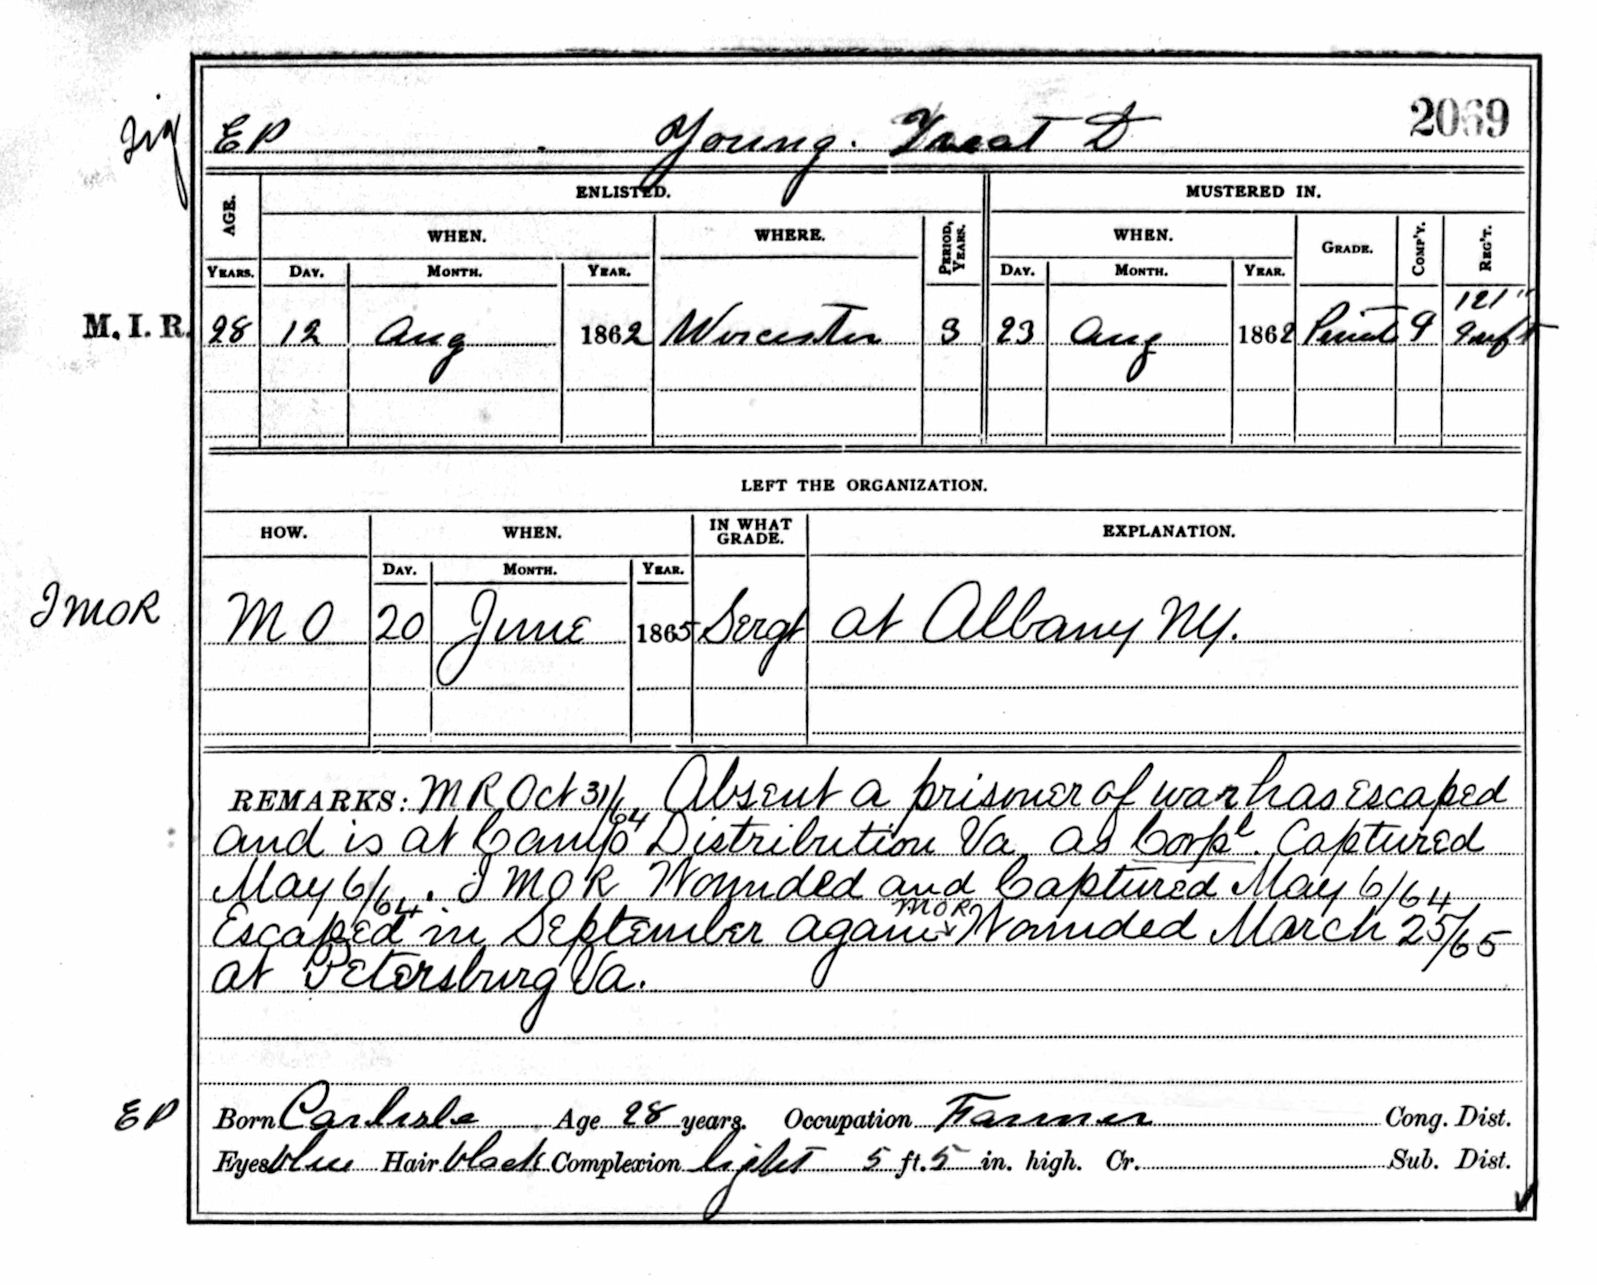 2069
Sig EP Young. Treat D
AGE. ENLISTED. MUSTERED IN.
WHEN. WHERE. PERIOD, YEARS. WHEN. GRADE. COMP'Y. REG'T.
YEARS. DAY. MONTH. YEAR. DAY. MONTH. YEAR.
121"
M. I. R. 28 12 Aug 1862 Worcester 3 23 Aug 1862 Private G Inft
LEFT THE ORGANIZATION.
HOW. WHEN. IN WHAT GRADE. EXPLANATION.
DAY. MONTH. YEAR.
I MOR M O 20 June 1865 Sergt at Albany NY.
REMARKS: M R Oct 31/64. Absent a prisoner of war has escaped
and is at Camp Distribution Va as Corpl. Captured
May 6/64. I M O R Wounded and Captured May 6/64
Escaped in September again MOR Wounded March 25/65
at Petersburg Va.
EP Born Carlisle Age 28 years. Occupation Farmer Cong. Dist.
Eyes blue Hair black Complexion light 5 ft. 5 in. high. Cr. Sub. Dist.